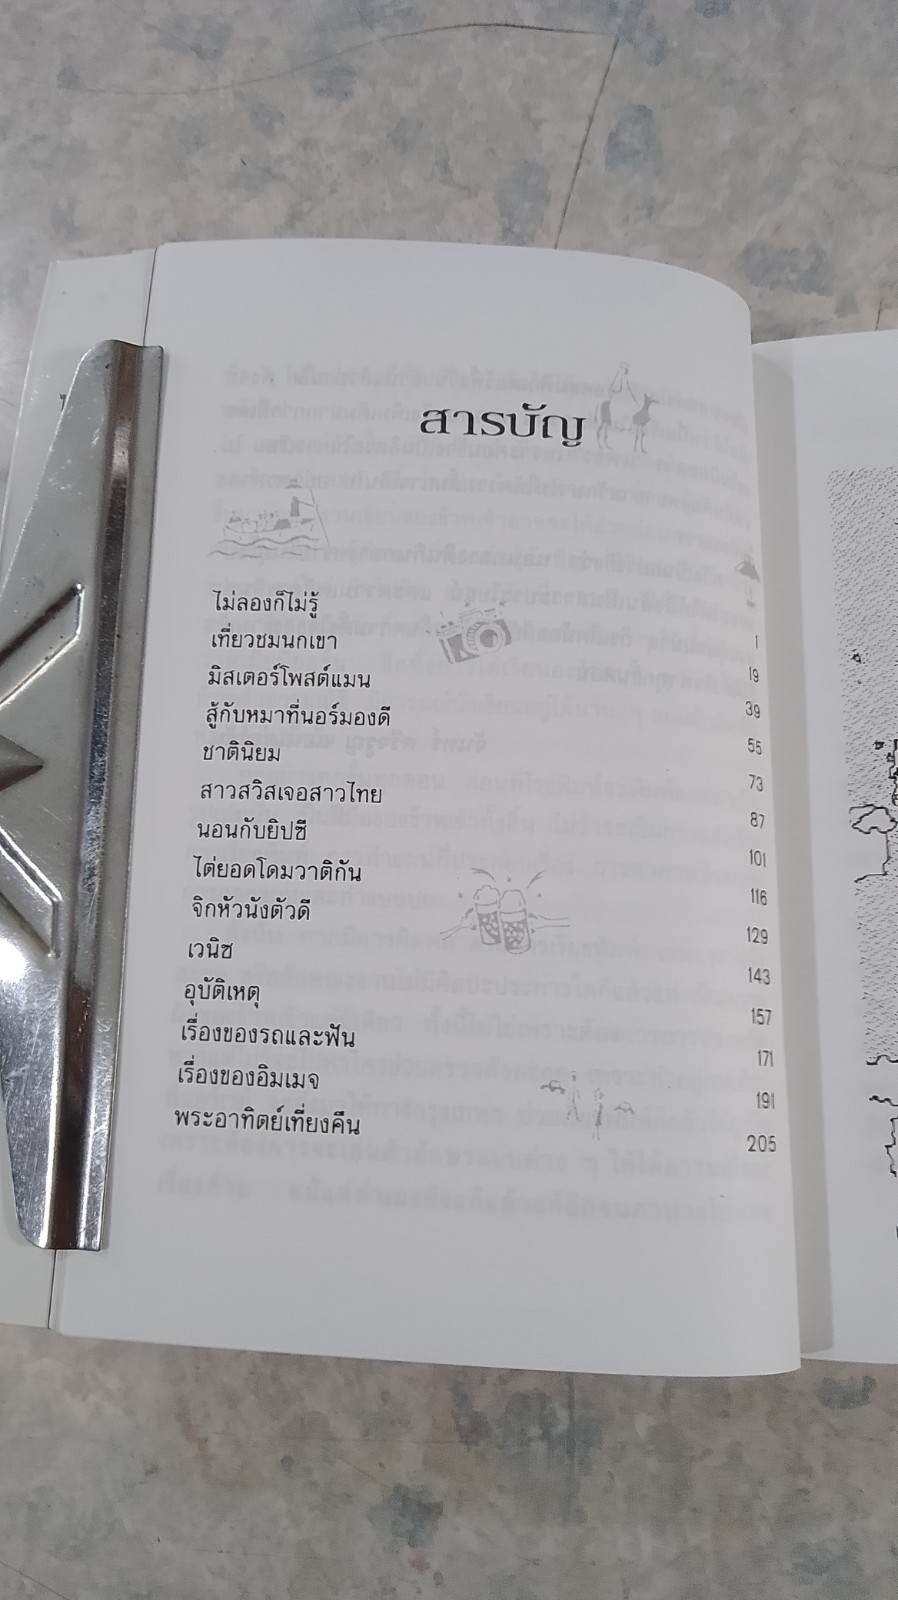 สารบัญ
ไม่ลองก็ไม่รู้ 1
เที่ยวชมนกเขา 19
มิสเตอร์โพสต์แมน 39
สู้กับหมาที่นอร์มองดี 55
ชาตินิยม 73
สาวสวิสเจอสาวไทย 87
นอนกับยิปซี 101
ไต่ยอดโดมวาติกัน 116
จิกหัวนังตัวดี 129
เวนิซ 143
อุบัติเหตุ 157
เรื่องของรถและฟัน 171
เรื่องของอิมเมจ 191
พระอาทิตย์เที่ยงคืน 205